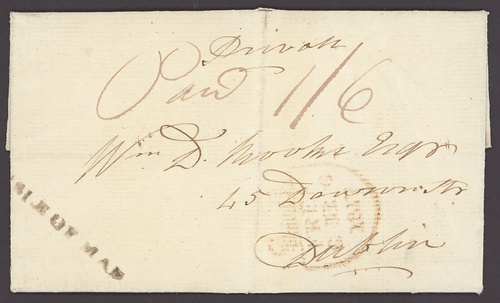 Private
Paid 1/6
Wm D. Moore Esqr
45 Dawson St.
ISLE OF MAN
Dublin